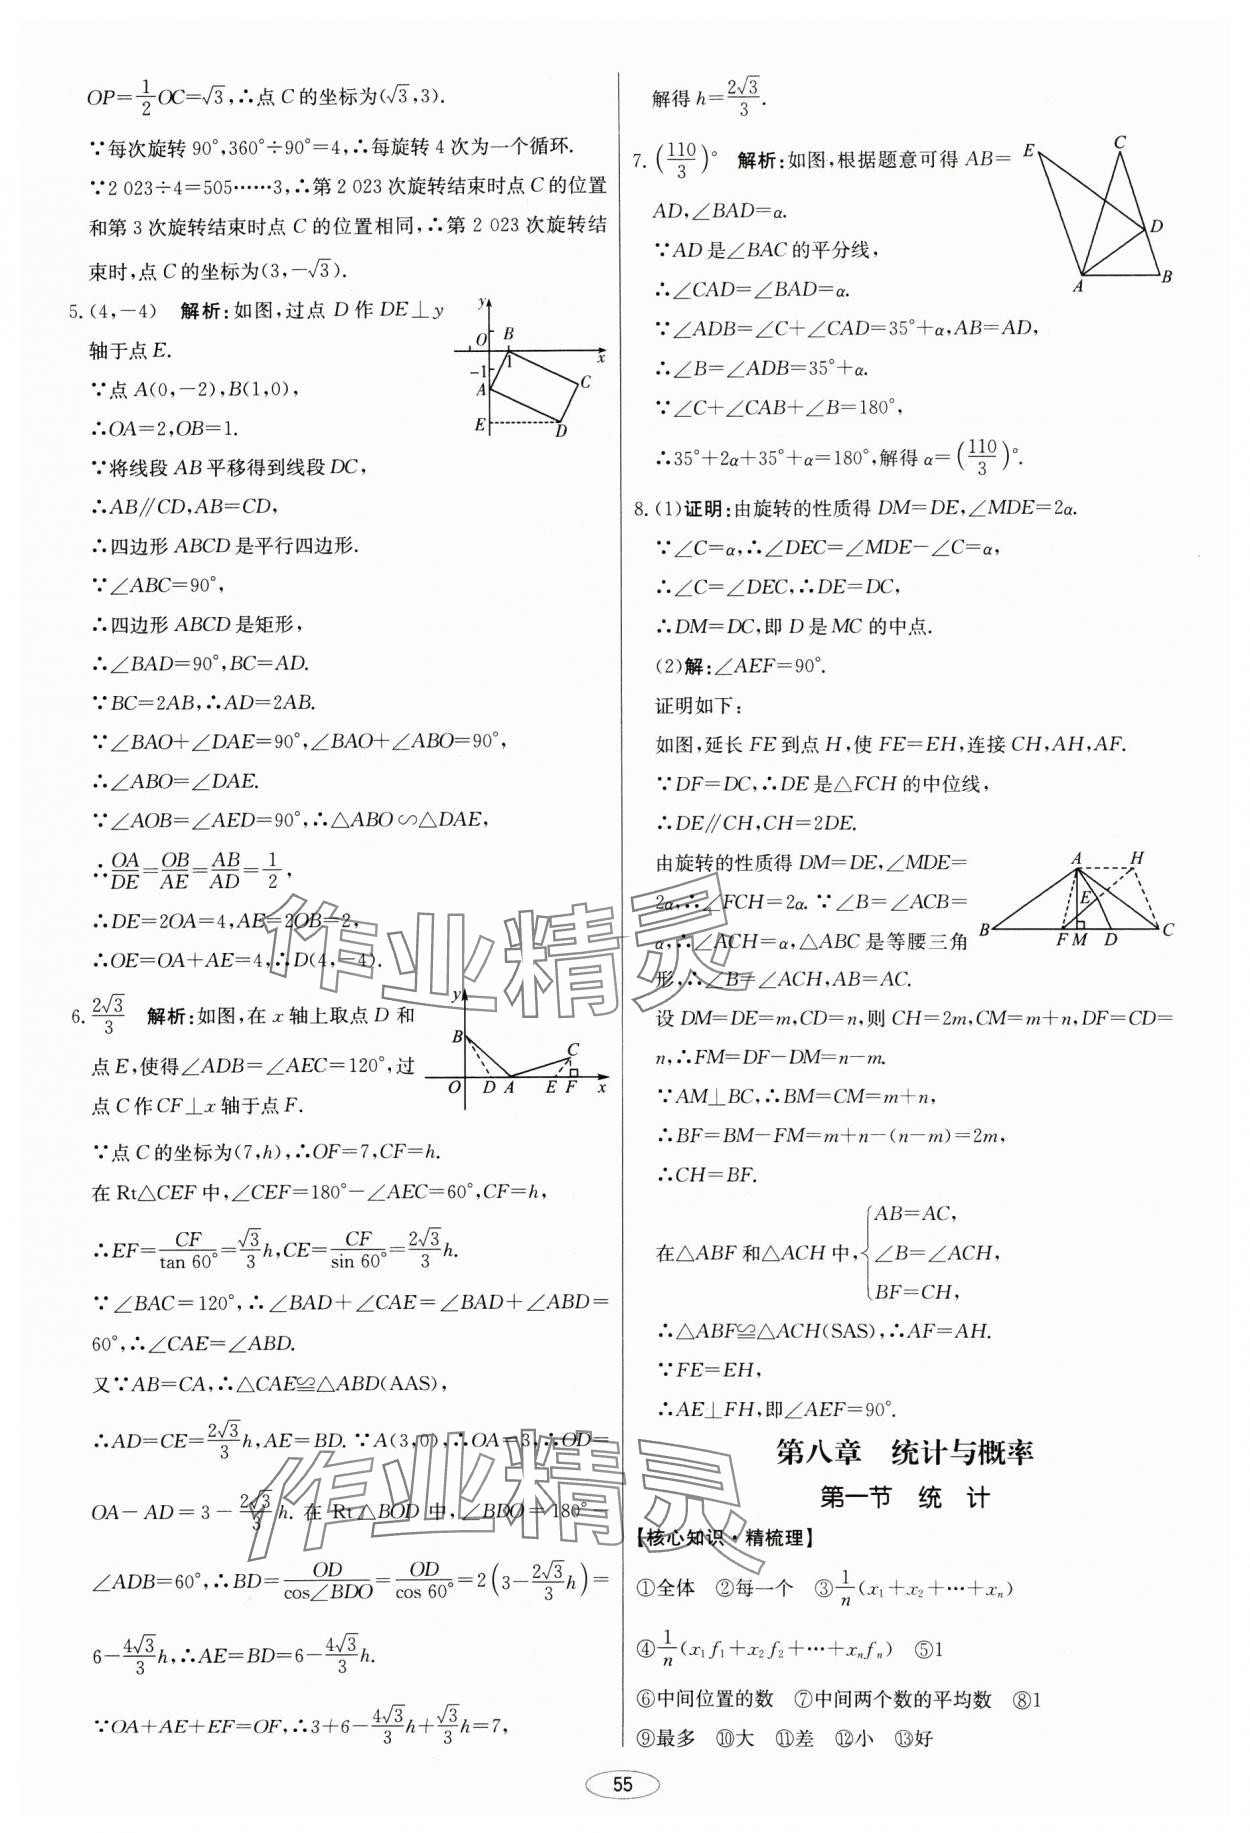 OP=1/2OC=√3,∴点C的坐标为(√3,3).
∵每次旋转90°,360°÷90°=4,∴每旋转4次为一个循环.
∵2 023÷4=505……3,∴第2 023次旋转结束时点C的位置
和第3次旋转结束时点C的位置相同,∴第2 023次旋转结
束时,点C的坐标为(3,-√3).
5.(4,-4) 解析:如图,过点D作DE⊥y
轴于点E.
∵点A(0,-2),B(1,0),
∴OA=2,OB=1.
∵将线段AB平移得到线段DC,
∴AB∥CD,AB=CD,
∴四边形ABCD是平行四边形.
∵∠ABC=90°,
∴四边形ABCD是矩形,
∴∠BAD=90°,BC=AD.
∵BC=2AB,∴AD=2AB.
∵∠BAO+∠DAE=90°,∠BAO+∠ABO=90°,
∴∠ABO=∠DAE.
∵∠AOB=∠AED=90°,∴△ABO∽△DAE,
∴OA/DE=OB/AE=AB/AD=1/2,
∴DE=2OA=4,AE=2OB=2,
∴OE=OA+AE=4,∴D(4,-4).
y
O B
1 x
-1
A C
E D
6. 2√3/3 解析:如图,在x轴上取点D和
点E,使得∠ADB=∠AEC=120°,过
点C作CF⊥x轴于点F.
y
B
C
O D A E F x
∵点C的坐标为(7,h),∴OF=7,CF=h.
在Rt△CEF中,∠CEF=180°-∠AEC=60°,CF=h,
∴EF=CF/tan 60°=√3/3h,CE=CF/sin 60°=2√3/3h.
∵∠BAC=120°,∴∠BAD+∠CAE=∠BAD+∠ABD=
60°,∴∠CAE=∠ABD.
又∵AB=CA,∴△CAE≌△ABD(AAS),
∴AD=CE=2√3/3h,AE=BD.∵A(3,0),∴OA=3,∴OD=
OA-AD=3-2√3/3h.在Rt△BOD中,∠BDO=180°-
∠ADB=60°,∴BD=OD/cos∠BDO=OD/cos 60°=2(3-2√3/3h)=
6-4√3/3h,∴AE=BD=6-4√3/3h.
∵OA+AE+EF=OF,∴3+6-4√3/3h+√3/3h=7,
解得h=2√3/3.
7.(110/3)° 解析:如图,根据题意可得AB=
AD,∠BAD=α.
∵AD是∠BAC的平分线,
∴∠CAD=∠BAD=α.
∵∠ADB=∠C+∠CAD=35°+α,AB=AD,
∴∠B=∠ADB=35°+α.
∵∠C+∠CAB+∠B=180°,
∴35°+2α+35°+α=180°,解得α=(110/3)°.
E C
D
A B
8.(1)证明:由旋转的性质得DM=DE,∠MDE=2α.
∵∠C=α,∴∠DEC=∠MDE-∠C=α,
∴∠C=∠DEC,∴DE=DC,
∴DM=DC,即D是MC的中点.
(2)解:∠AEF=90°.
证明如下:
如图,延长FE到点H,使FE=EH,连接CH,AH,AF.
∵DF=DC,∴DE是△FCH的中位线,
∴DE∥CH,CH=2DE.
由旋转的性质得DM=DE,∠MDE=
2α,∴∠FCH=2α.∵∠B=∠ACB=
α,∴∠ACH=α,△ABC是等腰三角
形,∴∠B=∠ACH,AB=AC.
A H
E
B F M D C
设DM=DE=m,CD=n,则CH=2m,CM=m+n,DF=CD=
n,∴FM=DF-DM=n-m.
∵AM⊥BC,∴BM=CM=m+n,
∴BF=BM-FM=m+n-(n-m)=2m,
∴CH=BF.
在△ABF和△ACH中,{AB=AC,
∠B=∠ACH,
BF=CH,
∴△ABF≌△ACH(SAS),∴AF=AH.
∵FE=EH,
∴AE⊥FH,即∠AEF=90°.
第八章 统计与概率
第一节 统 计
【核心知识·精梳理】
①全体 ②每一个 ③1/n(x₁+x₂+…+xₙ)
④1/n(x₁f₁+x₂f₂+…+xₙfₙ) ⑤1
⑥中间位置的数 ⑦中间两个数的平均数 ⑧1
⑨最多 ⑩大 ⑪差 ⑫小 ⑬好
55
作业精灵
作业精灵